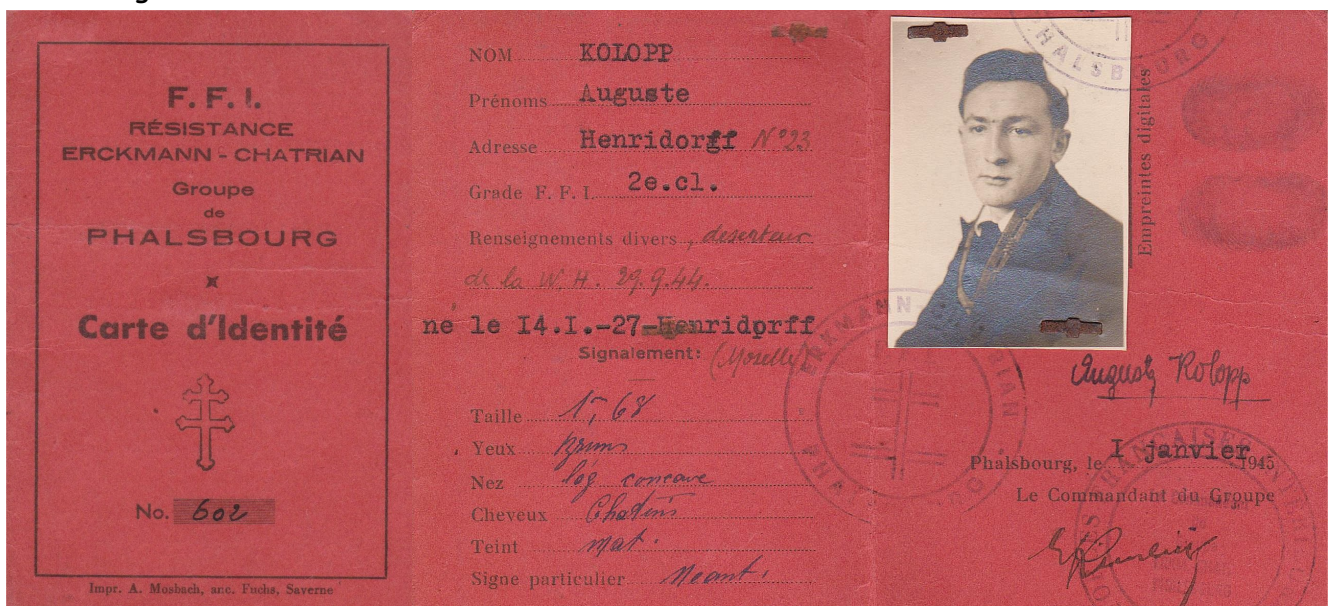 F. F. I.
RÉSISTANCE
ERCKMANN - CHATRIAN
Groupe
de
PHALSBOURG
Carte d'Identité
No. 602
Impr. A. Mosbach, anc. Fuchs, Saverne
NOM KOLOPP
Prénoms Auguste
Adresse Henridorff N° 23
Grade F. F. I. 2e.cl.
Renseignements divers, deserteur
de la W. H. 29.9.44.
né le I4.I.-27-Henridorff
Signalement: (Moselle)
Taille 1m, 68
Yeux bruns
Nez lég concave
Cheveux Chatins
Teint mat.
Signe particulier Neant.
PHALSBOURG
Empreintes digitales
ERKMANN
Auguste Kolopp
Phalsbourg, le I janvier 1945
Le Commandant du Groupe